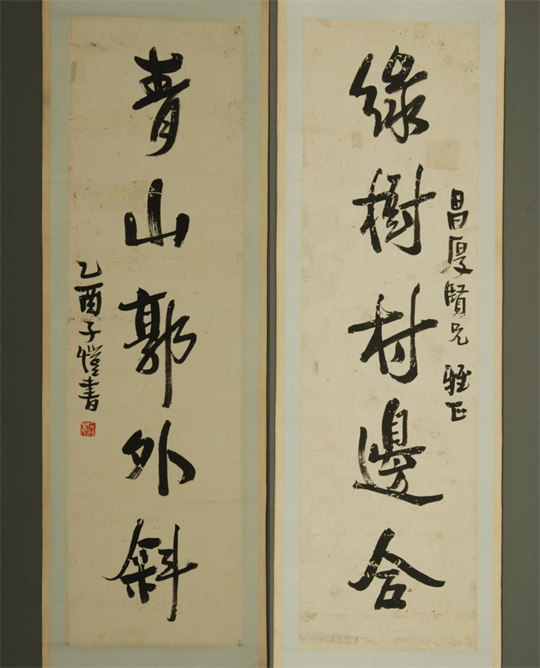 綠樹村邊合
昌厚賢兄 雅正
青山郭外斜
乙酉子愷書